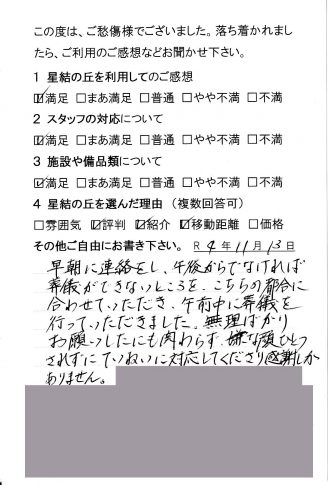 この度は、ご愁傷様でございました。落ち着かれまし
たら、ご利用のご感想などお聞かせ下さい。
1 星結の丘を利用してのご感想
☑満足 □まあ満足 □普通 □やや不満 □不満
2 スタッフの対応について
☑満足 □まあ満足 □普通 □やや不満 □不満
3 施設や備品類について
☑満足 □まあ満足 □普通 □やや不満 □不満
4 星結の丘を選んだ理由（複数回答可）
□雰囲気 ☑評判 ☑紹介 ☑移動距離 □価格
その他ご自由にお書き下さい。 R 4 年 11 月 13 日
早朝に連絡をし、午後からでなければ
葬儀ができないところを、こちらの都合に
合わせていただき、午前中に葬儀を
行っていただきました。無理ばかり
お願いしたにも関わらず、嫌な顔ひとつ
されずにていねいに対応してくださり感謝しか
ありません。